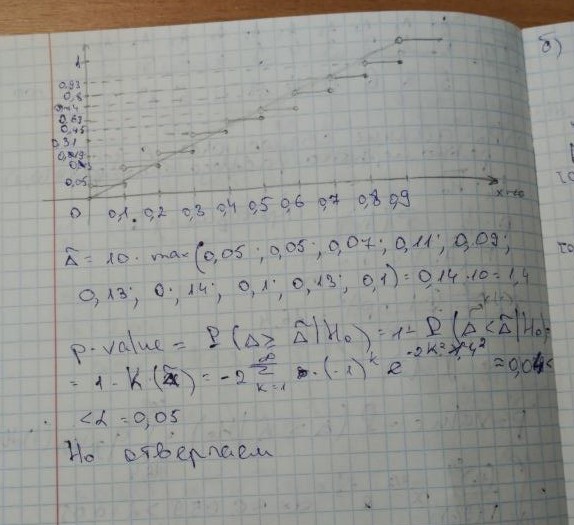 б)
1
0,93
0,8
0,63
0,45
0,31
0,05
0 0,1 0,2 0,3 0,4 0,5 0,6 0,7 0,8 0,9
Δ̃ = 10 · max(0,05; 0,05; 0,07; 0,11; 0,09;
0,13; 0; 14; 0,1; 0,13; 0,1) = 0,14·10 = 1,4
p-value = P(Δ ≥ Δ̃ | H₀) = 1 - P(Δ < Δ̃ | H₀) =
= 1 - K(Δ̃) = -2 ∑ₖ₌₁^∞ (-1)^k e^ ≈ 0,04 <
< α = 0,05
H₀ отвергаем